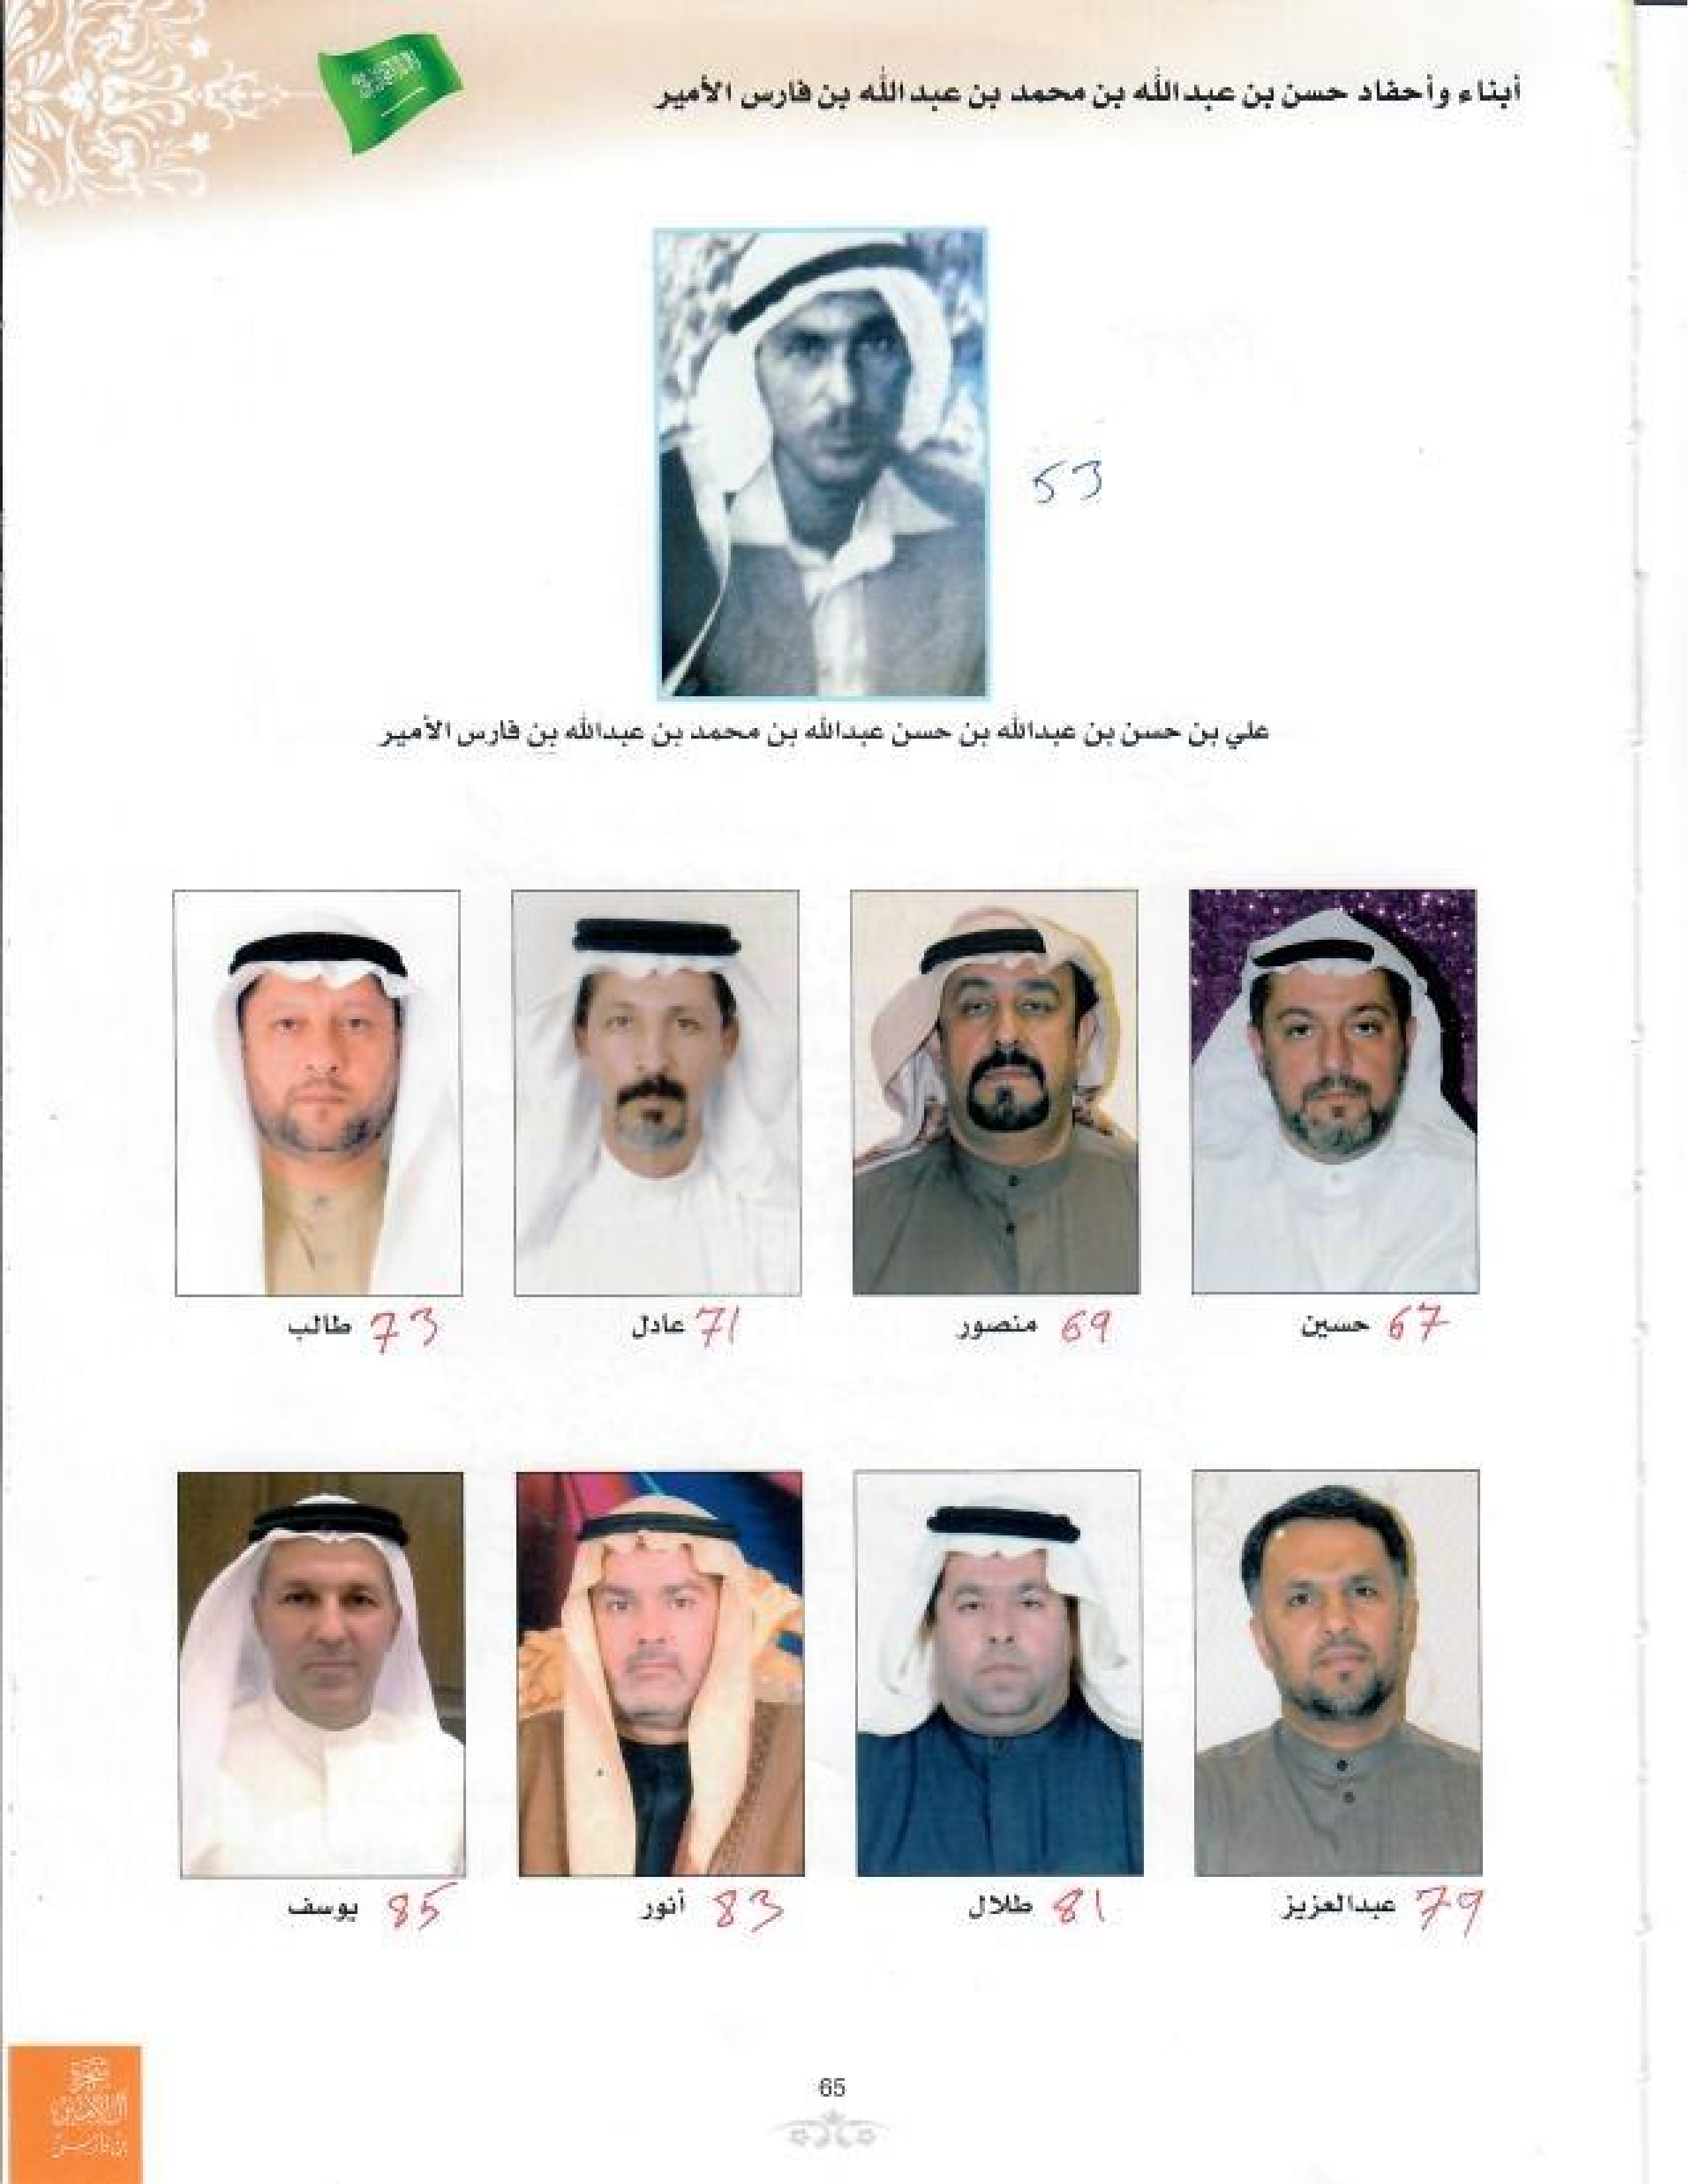 أبناء وأحفاد حسن بن عبدالله بن محمد بن عبدالله بن فارس الأمير
53
علي بن حسن بن عبدالله بن حسن عبدالله بن محمد بن عبدالله بن فارس الأمير
67 حسين
69 منصور
71 عادل
73 طالب
79 عبدالعزيز
81 طلال
83 أنور
85 يوسف
65
شجرة